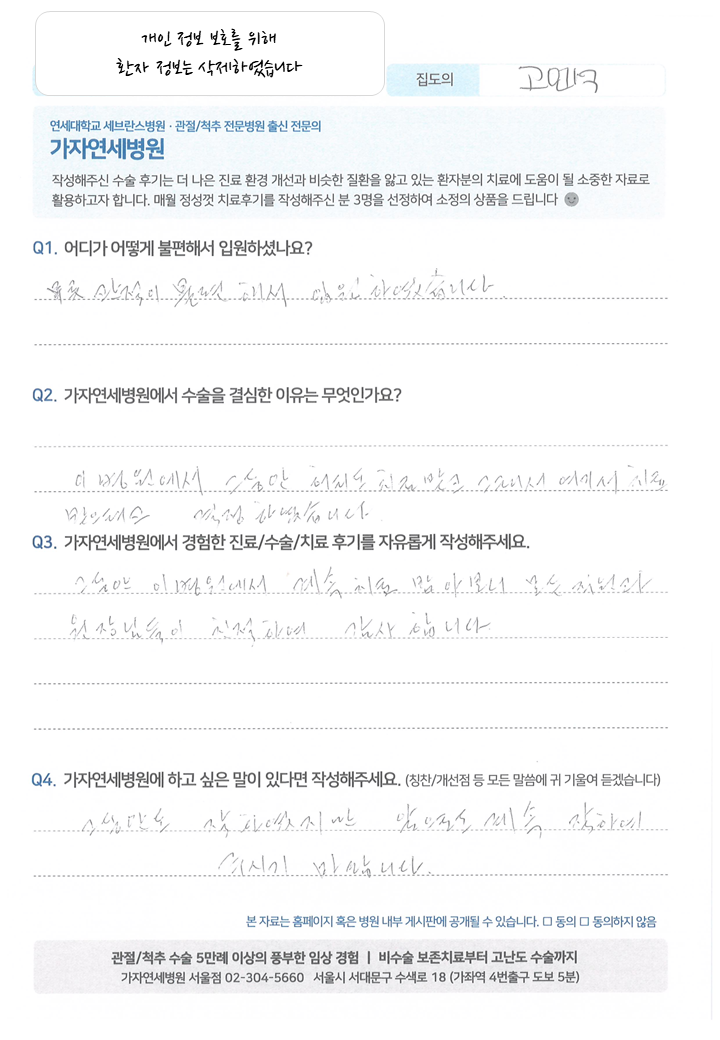 개인 정보 보호를 위해
환자 정보는 삭제하였습니다
집도의 고민국
연세대학교 세브란스병원 · 관절/척추 전문병원 출신 전문의
가자연세병원
작성해주신 수술 후기는 더 나은 진료 환경 개선과 비슷한 질환을 앓고 있는 환자분의 치료에 도움이 될 소중한 자료로
활용하고자 합니다. 매월 정성껏 치료후기를 작성해주신 분 3명을 선정하여 소정의 상품을 드립니다
Q1. 어디가 어떻게 불편해서 입원하셨나요?
관절이 불편해서 입원하였습니다
Q2. 가자연세병원에서 수술을 결심한 이유는 무엇인가요?
이 병원에서 그동안 허리도 치료 받고 그래서 여기서 치료
결정하였습니다
Q3. 가자연세병원에서 경험한 진료/수술/치료 후기를 자유롭게 작성해주세요.
그동안 이병원에서 계속 치료 받아보니 모든 직원과
원장님들이 친절하여 감사합니다
Q4. 가자연세병원에 하고 싶은 말이 있다면 작성해주세요. (칭찬/개선점 등 모든 말씀에 귀 기울여 듣겠습니다)
그동안도 잘 하였지만 앞으로도 계속 잘하여
주시기 바랍니다.
본 자료는 홈페이지 혹은 병원 내부 게시판에 공개될 수 있습니다. □ 동의 □ 동의하지 않음
관절/척추 수술 5만례 이상의 풍부한 임상 경험 | 비수술 보존치료부터 고난도 수술까지
가자연세병원 서울점 02-304-5660 서울시 서대문구 수색로 18 (가좌역 4번출구 도보 5분)